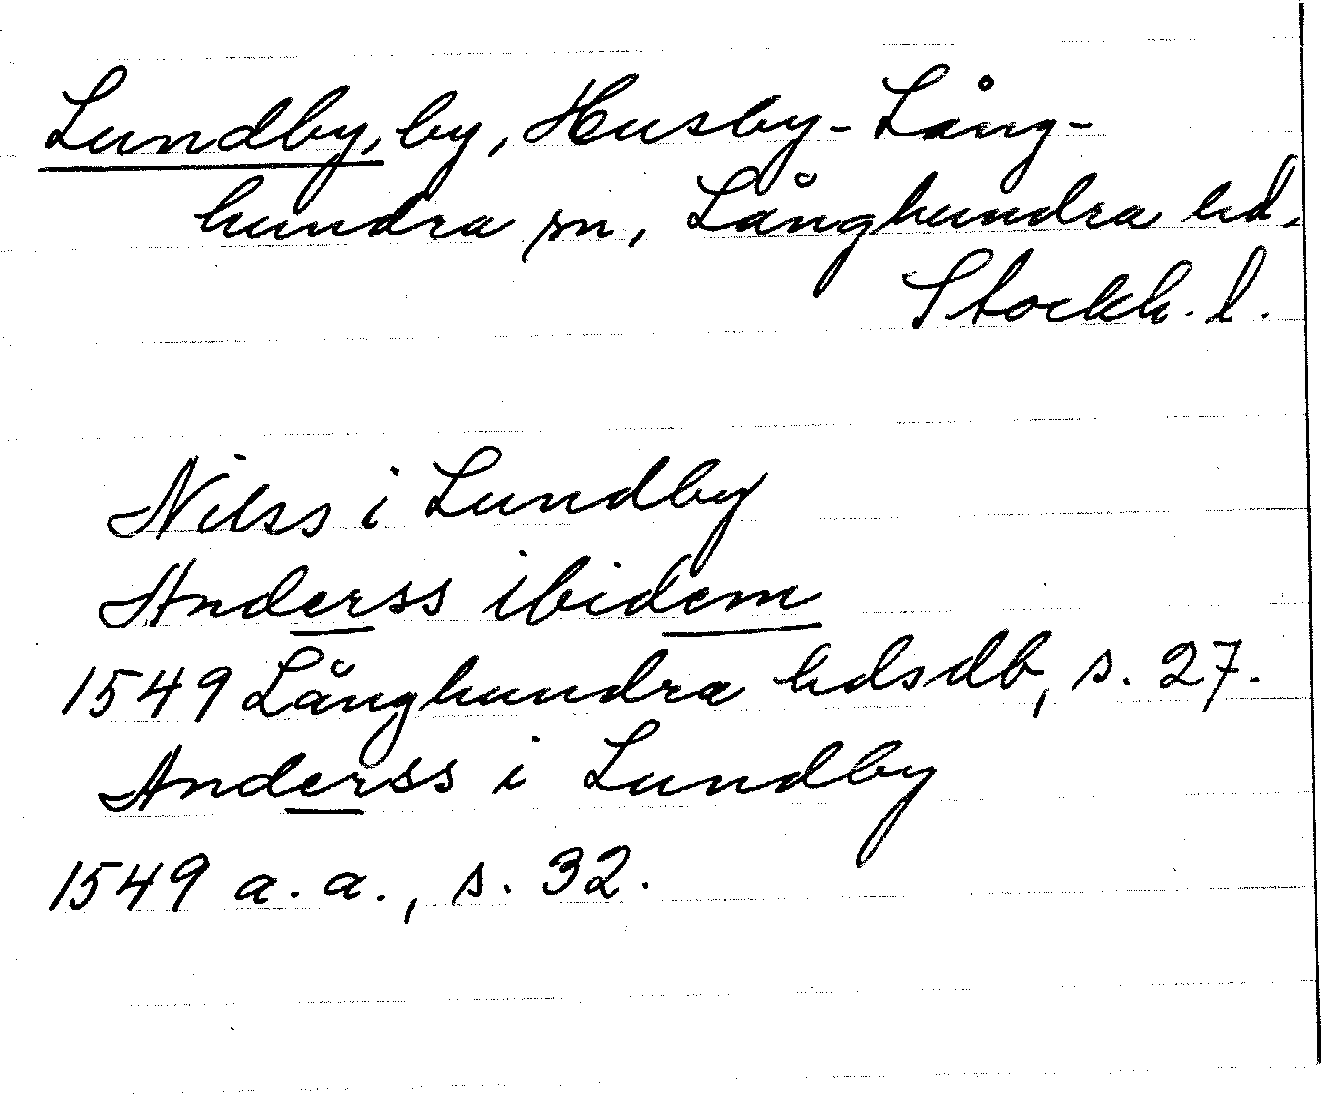 Lundby, by, Husby-Lång-
hundra sn, Långhundra hd,
Stockh. l.
Nilss i Lundby
Anderss ibidem
1549 Långhundra hdsdb, s. 27.
Anderss i Lundby
1549 a. a., s. 32.